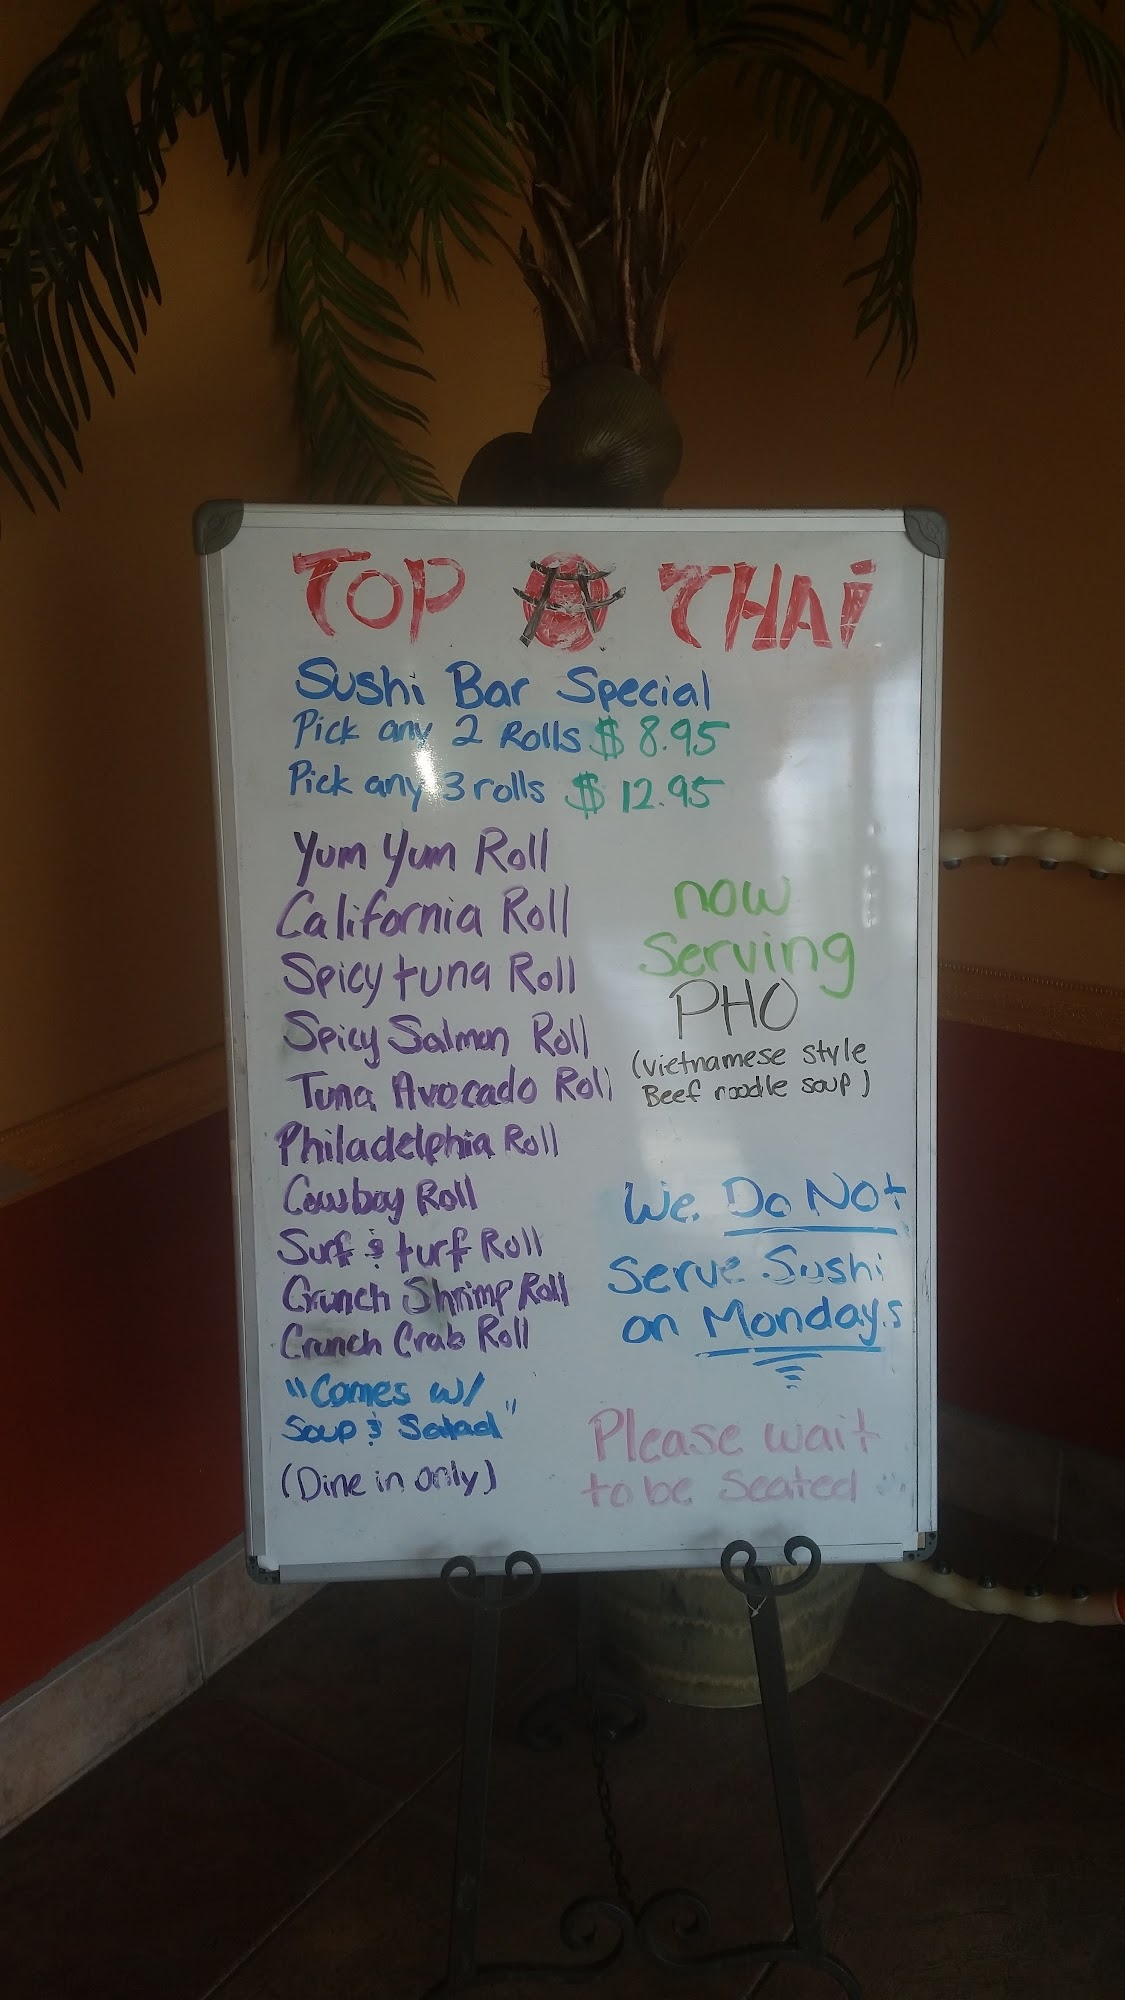 TOP THAi
Sushi Bar Special
Pick any 2 Rolls $8.95
Pick any 3 rolls $12.95
Yum Yum Roll
California Roll
Spicy tuna Roll
Spicy Salmon Roll
Tuna Avocado Roll
Philadelphia Roll
Cowboy Roll
Surf & turf Roll
Crunch Shrimp Roll
Crunch Crab Roll
"Comes w/
Soup & Salad"
(Dine in only)
now
Serving
PHO
(vietnamese style
Beef noodle soup)
We Do Not
Serve Sushi
on Mondays
Please wait
to be Seated